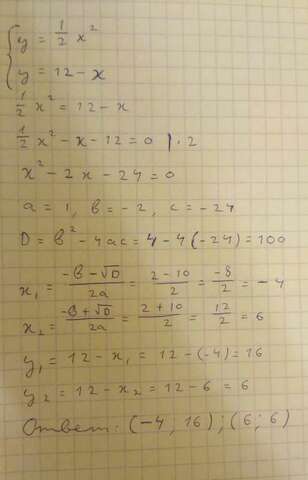 y = 1/2 x²
y = 12 - x
1/2 x² = 12 - x
1/2 x² - x - 12 = 0 | · 2
x² - 2x - 24 = 0
a = 1, b = -2, c = -24
D = b² - 4ac = 4 - 4(-24) = 100
x₁ = (-b - √D)/2a = (2 - 10)/2 = -8/2 = -4
x₂ = (-b + √D)/2a = (2 + 10)/2 = 12/2 = 6
y₁ = 12 - x₁ = 12 - (-4) = 16
y₂ = 12 - x₂ = 12 - 6 = 6
Ответ: (-4; 16); (6; 6)